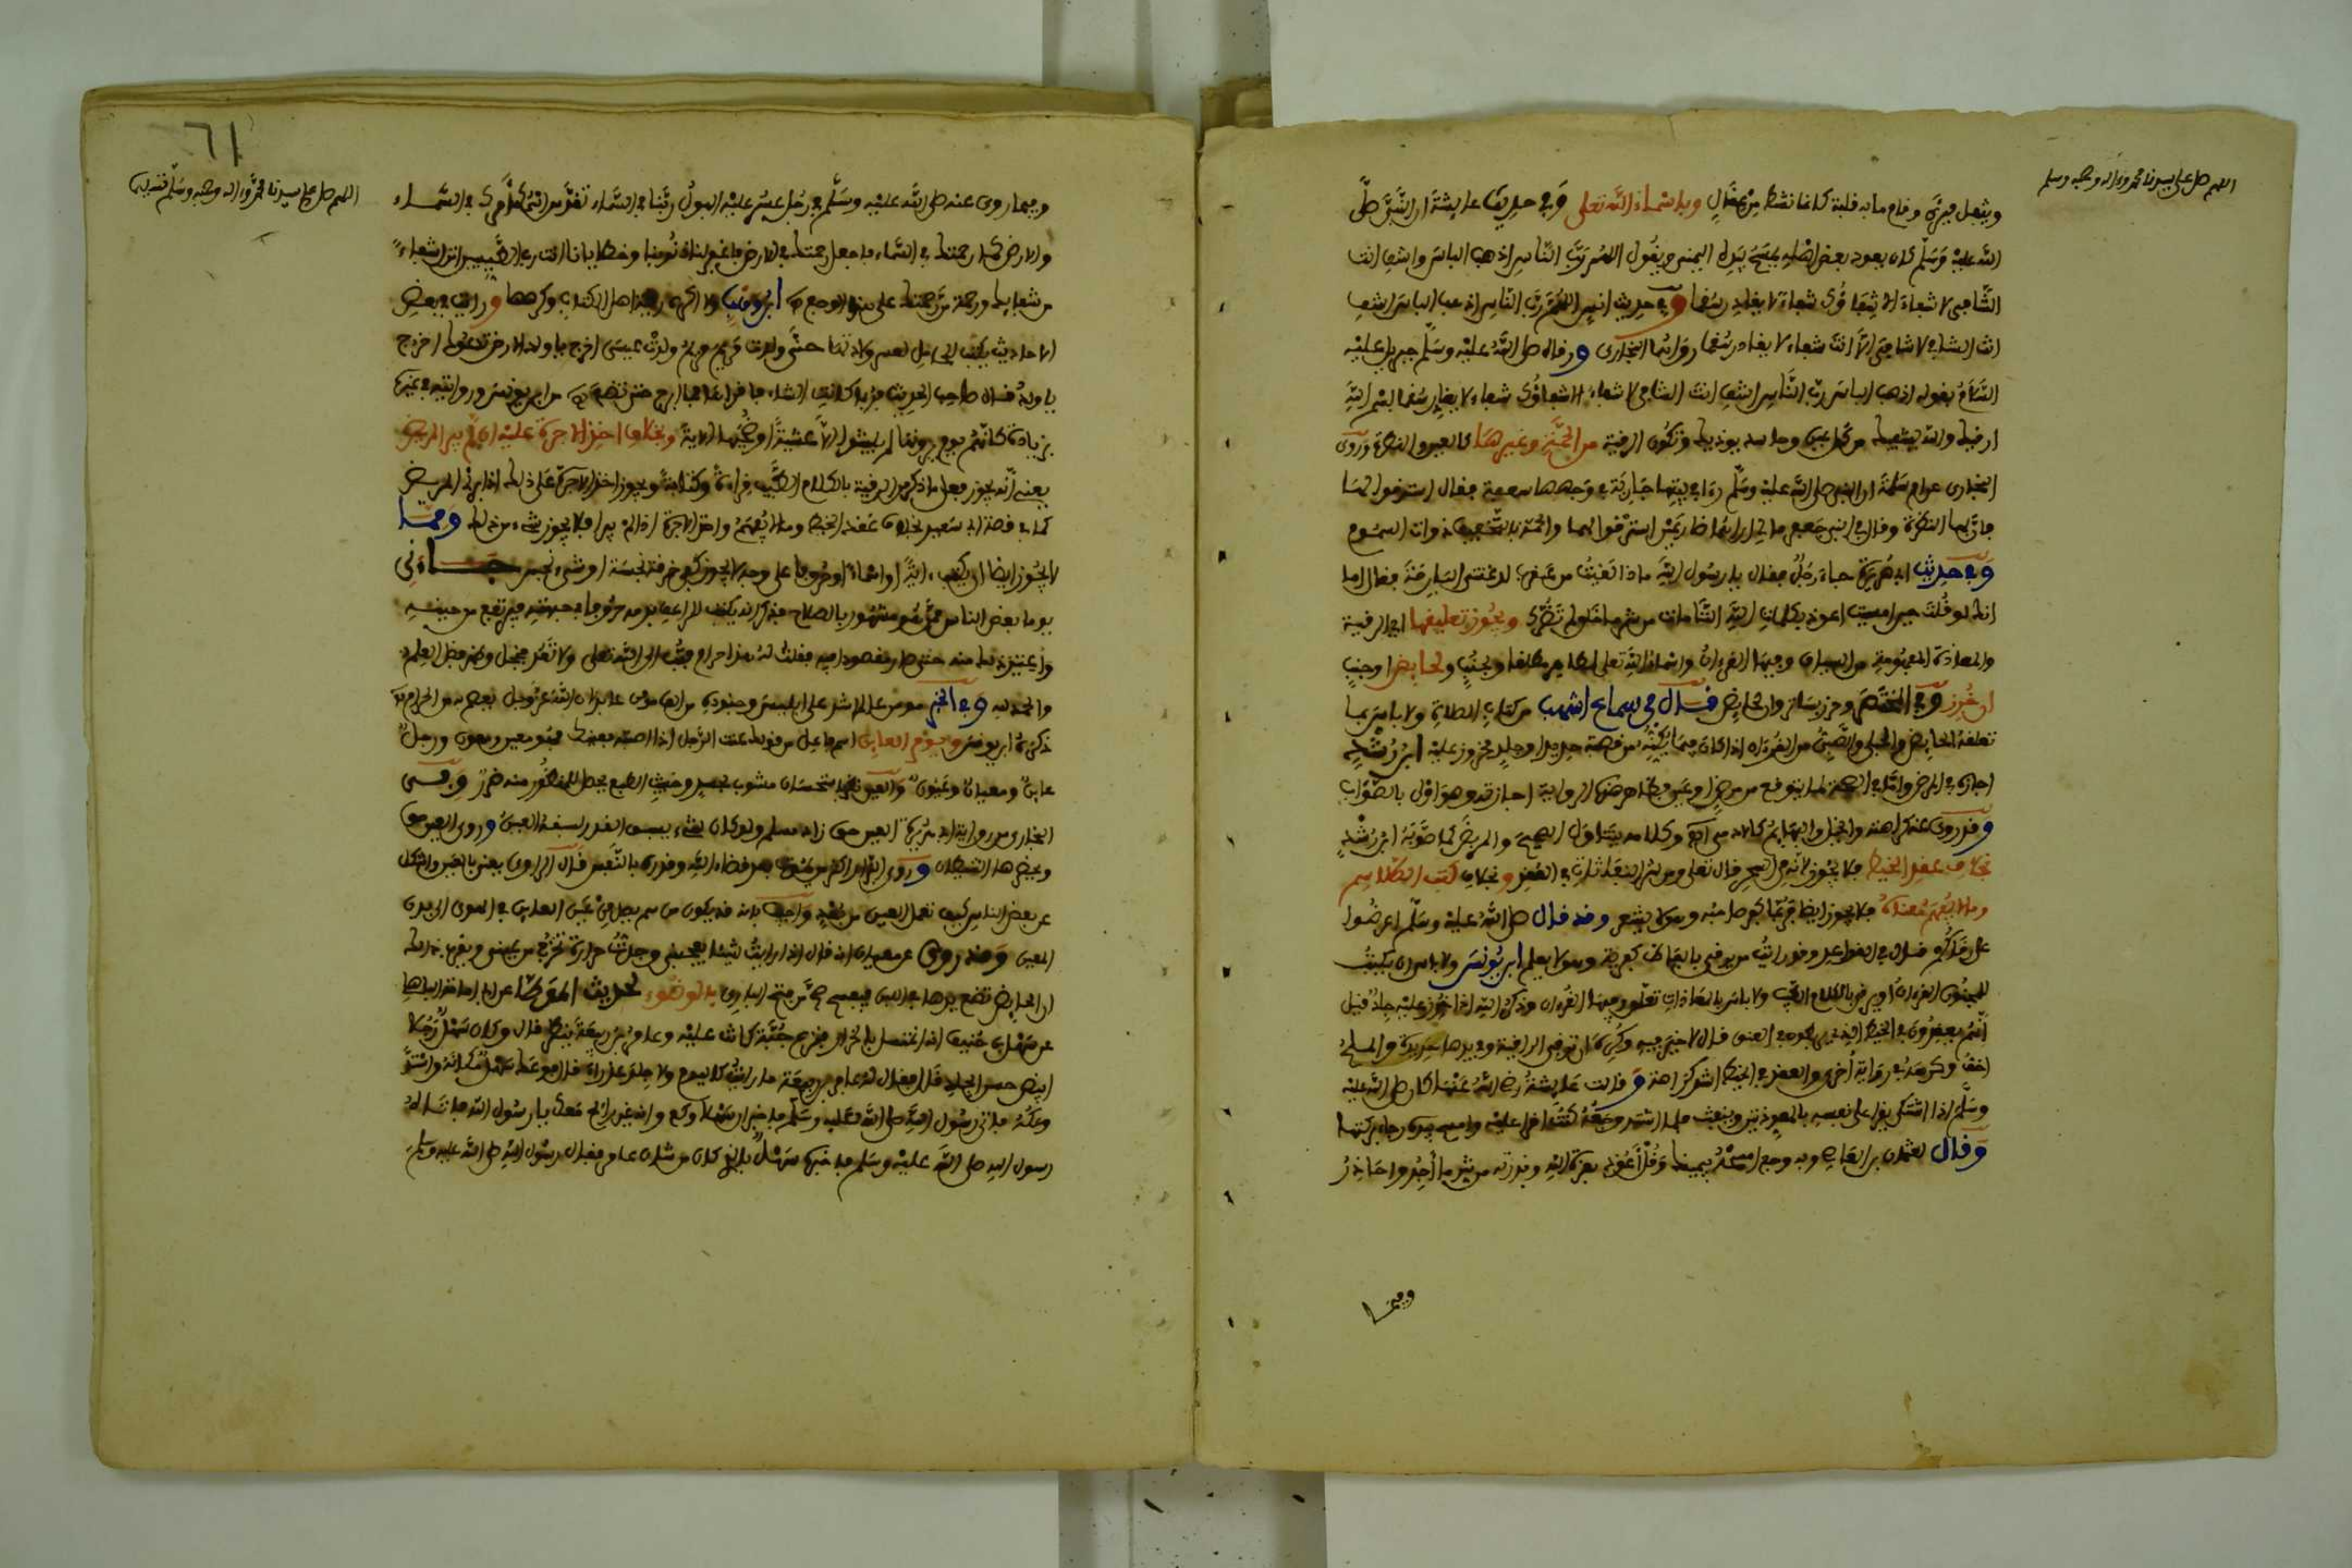 اللهم صل على سيدنا محمد وءاله وصحبه وسلم
ويتفل فبرئ وقام ما به قلبة كانما نشط من عقال وباسماء الله تعلى وفي حديث عايشة ان النبي صلى
الله عليه وسلم كان يعود بعض اهله يمسح بيده اليمنى ويقول اللهم رب الناس اذهب الباس واشف انت
الشافي لا شفاء الا شفاؤك شفاء لا يغادر سقما وفي حديث انس اللهم رب الناس اذهب الباس اشف
انت الشافي لا شافي الا انت شفاء لا يغادر سقما رواهما البخاري ورقاه صلى الله عليه وسلم جبريل عليه
السلام بقوله اذهب الباس رب الناس اشف انت الشافي لا شفاء الا شفاؤك شفاء لا يغادر سقما بسم الله
ارقيك والله يشفيك من كل عين وحاسد يوذيك وتكون الرقية من الجن وغيرها كالعين والنظرة وروى
البخاري عن ام سلمة ان النبي صلى الله عليه وسلم رءا في بيتها جارية في وجهها سفعة فقال استرقوا لها
فان بها النظرة وقال في ابني جعفر مالي اراهما ضارعين استرقوا لهما والحمة بالتخفيف ذوات السموم
وفي حديث ابي هريرة جاء رجل فقال يا رسول الله ماذا لقيت من عقرب لدغتني البارحة فقال اما
انك لو قلت حين امسيت اعوذ بكلمات الله التامات من شر ما خلق لم تضرك ويجوز تعليقها اي الرقية
والمعاذة المفهومة من اللسان وفيها القرءان واسماء الله تعلى لطاهر مطلقا ولجنب ولحايض او جنب
ان خرز وفي المختصر وحرز بساتر وان لحايض قال في سماع اشهب من كتاب الصلاة ولا باس بما
تعلقه الحايض والحبلى والصبي من القرءان اذا كان فيما يكنه من قصبة حديد او جلد مخروز عليه ابن رشد
اجازه في المرض واما في الصحة لما يتوقع من مرض او عين فظاهر هذه الرواية اجازته وهو اولى بالصواب
وقد روي عنه كراهته والخيل والبهايم كالادمي وكلامه يتناول الصحيح والمريض كما صوبه ابن رشد
بخلاف عقد الخيط فلا يجوز لانه من السحر قال تعلى ومن شر النفاثات في العقد وبخلاف كتب الطلاسم
وما لا يفهم معناه فلا يجوز ايضا فربما كفر صاحبه وهو لا يشعر وقد قال صلى الله عليه وسلم اعرضوا
علي رقاكم قال في القواعد وقد رايت من يرقي بالفاظ كفرية وهو لا يعلم ابن يونس ولا باس ان يكتب
للمجنون القرءان او يرقى بالكلام الطيب ولا باس بالمعاذات تعلق وفيها القرءان وذكر الله اذا خرز عليه جلد قيل
انهم يعقدون في الخيط الذي يربط به في العنق قال لا خير فيه وكره ان ترقي الراقية وفي يدها حديدة والملح
اخف وكرهه في رواية اخرى والعقد في الخيط اشد كراهة وقالت عايشة رضي الله عنها كان صلى الله عليه
وسلم اذا اشتكى يقرا على نفسه بالمعوذتين وينفث فلما اشتد وجعه كنت اقرا عليه وامسح بيده رجاء بركتها
وقال لعثمان بن ابي العاصي وبه وجع امسحه بيمينك وقل اعوذ بعزة الله وقدرته من شر ما اجد واحاذر
ومما
٦١
اللهم صل على سيدنا محمد وءاله وصحبه وسلم تسليما
وبما روي عنه صلى الله عليه وسلم في رجل عسر عليه البول ربنا في السماء تقدس اسمك امرك في السماء
والارض كما رحمتك في السماء فاجعل رحمتك في الارض فاغفر لنا ذنوبنا وخطايانا انت رب الطيبين انزل شفاء
من شفايك ورحمة من رحمتك على هذا الوجع ابن وهب ولا اكره رقية اهل الكتاب وكرهها ورايت في بعض
الاحاديث يكتب للحامل تعسر ولادتها حنى ولدت مريم ومريم ولدت عيسى اخرج يا ولد الارض تدعوك اخرج
يا ولد قال صاحب الحديث فربما كانت الشاة ماخضا فاقولها فما ابرح حتى تضع من ابن يونس وروايته في غيره
بزيادة كانهم يوم يرونها لم يلبثوا الا عشية او ضحيها الاية وبخلاف اخذ الاجرة عليه ان لم يبر المريض
يعني انه يجوز فعل ما ذكر من الرقية بالكلام الطيب قراءة وكتابة ويجوز اخذ الاجرة على ذلك اذا برئ المريض
كما في قصة ابي سعيد بخلاف عقد الخيط وما لا يفهم واخذ الاجرة اذا لم يبرا فلا يجوز شيء من ذلك ومما
لا يجوز ايضا ان يكتب ءاية او اسماء او حروفا على وجه لا يجوز كفي خرقة نجسة او شيء نجس جاءني
يوما بعض الناس ممن هو مشهور بالصلاح فذكر انه يكتب للراعف بدمه حروفا في جبهته فيرتفع من حينه
وانه
والحمد لله وفي الخبر
ذكره ابن يونس ويوم العاين اسم فاعل من قولك عنت الرجل اذا اصبته بعينك فهو معين ومعيون ورجل
عاين ومعيان وعيون والعين نظر باستحسان مشوب بحسد وخبث الطبع يحصل للمنظور منه ضرر وفي
البخاري من رواية ابي هريرة العين حق زاد مسلم ولو كان شيء يسبق القدر لسبقه العين وروي العين حق
ويحضرها الشيطان وروى البزار اكثر من يموت بعد قضاء الله وقدره بالنفس قال الراوي يعني بالعين واشكل
على بعض الناس كيف تعمل العين من بعد واجيب بانه قد يكون من سم يصل من عين العاين في الهوى الى بدن
المعين وقد روي عن معيان انه قال اذا رايت شيئا يعجبني وجدت حرارة تخرج من عيني ويقرب ذلك
ان الحايض تضع يدها في اللبن فيفسد بالوضوء لحديث الموطا عن ابي امامة
بن سهل بن حنيف انه اغتسل بالخرار فنزع جبة كانت عليه وعامر بن ربيعة ينظر قال وكان سهل رجلا
ابيض حسن الجلد قال فقال له عامر بن ربيعة ما رايت كاليوم ولا جلد عذراء قال فوعك سهل مكانه واشتد
وعكه فاتى رسول الله صلى الله عليه وسلم فاخبر ان سهلا وعك وانه غير رائح معك يا رسول الله فاتاه
رسول الله صلى الله عليه وسلم فاخبره سهل بالذي كان من شان عامر فقال رسول الله صلى الله عليه وسلم